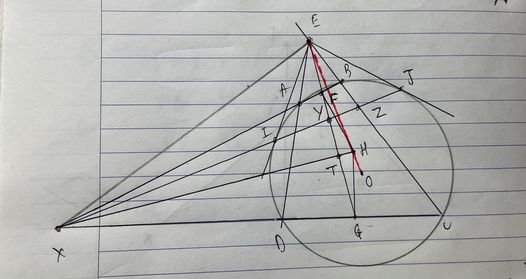 E
B
J
A
F
Y
Z
I
H
T
O
X
D
G
C